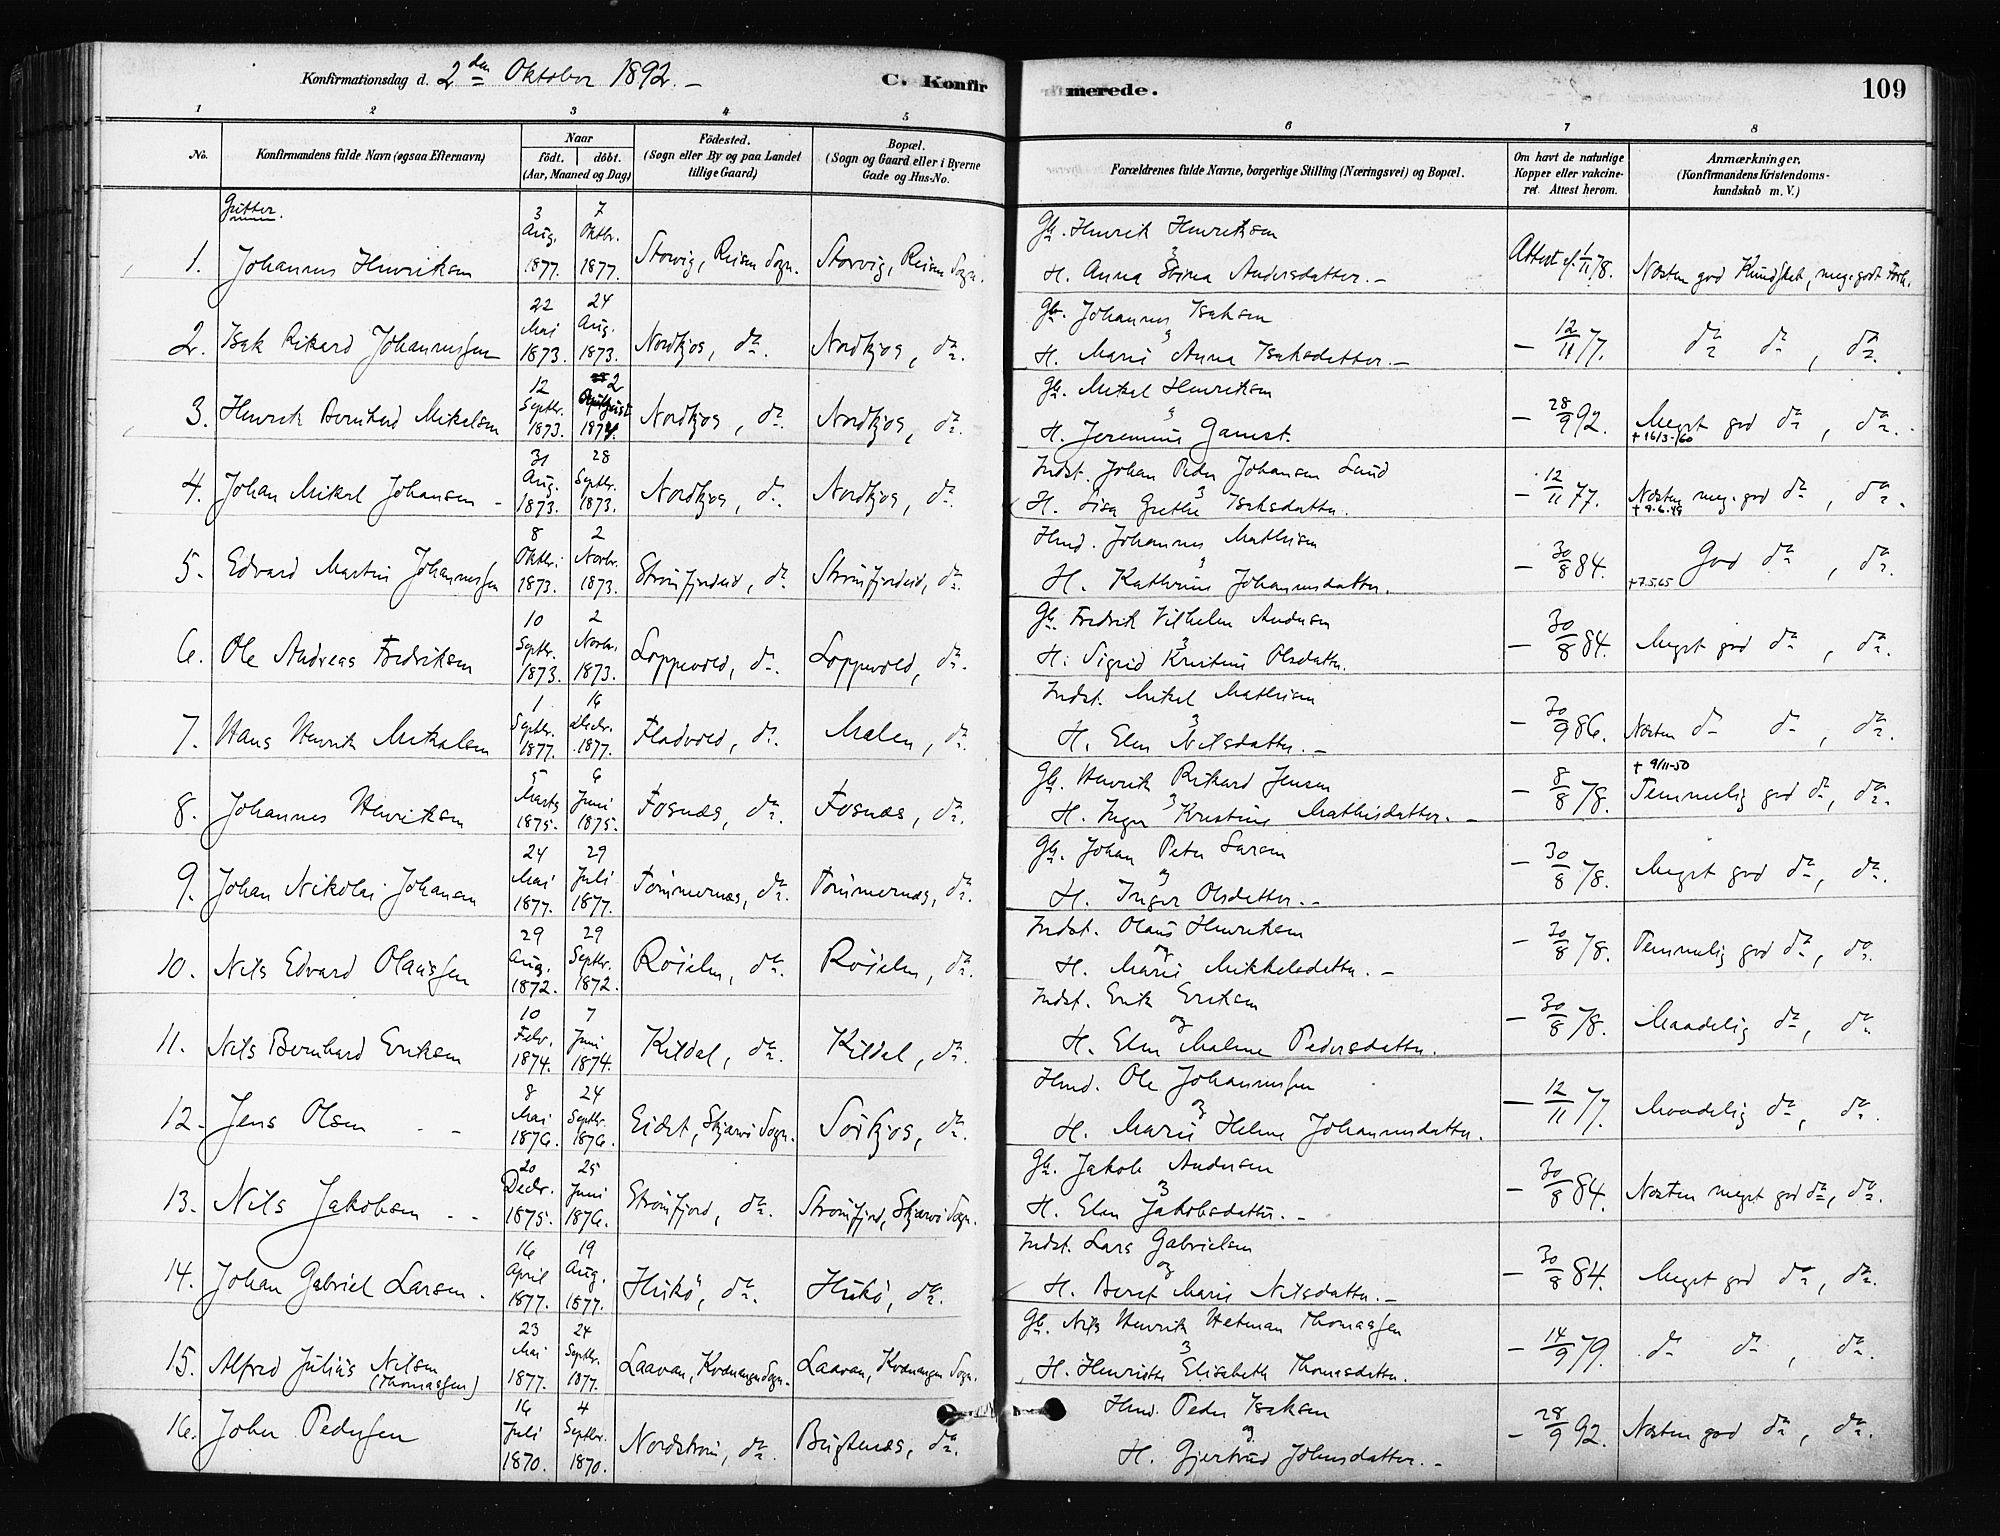 Konfirmationsdag d. 2den Oktober 1892. –
C. Konfirmerede.
109
1 2 3 4 5 6 7 8
No.
Konfirmandens fulde Navn (øgsaa Efternavn)
Naar
födt. döbt.
(Aar, Maaned og Dag)
Födested.
(Sogn eller By og paa Landet
tillige Gaard)
Bopæl.
(Sogn og Gaard eller i Byerne
Gade og Hus-No.
Forældrenes fulde Navne, borgerlige Stilling (Næringsvei) og Bopæl.
Om havt de naturlige
Kopper eller vakcine-
ret. Attest herom.
Anmærkninger.
(Konfirmandens Kristendoms-
kundskab m. V.)
Gutter.
1. Johannes Henriksen 3 Aug. 1877. 7 Oktbr. 1877. Storvig, Reisen Sogn. Storvig, Reisen Sogn.
Gb. Henrik Henriksen
H. Anna Andersdatter. –
Attest af 1/11 78. Næsten god Kundskab, meg. godt Forh.
2. Isak Rikard Johannessen 22 Mai 1873. 24 Aug. 1873. Nordkjos, do. Nordkjos, do.
Gb. Johannes Isaksen
og
H. Marie Anna Isaksdatter. –
– 12/11 77. do do, do.
3. Henrik Bernhard Mikelsen 12 Septbr. 1873. 2 1874. Nordkjos, do. Nordkjos, do.
Gb. Mikel Henriksen
og
H. Jeremine Gamst.
– 28/9 92. Meget god do, do.
+ 16/3-/60
4. Johan Mikel Johansen – 31 Aug. 1873. 28 Septbr. 1873. Nordkjos, do. Nordkjos, do.
Indst. Johan Peder Johansen Lund
og
H. Lisa Grethe Isaksdatter.
– 12/11 77. Næsten meg. god do, do.
+ 9.6.49
5. Edvard Martin Johannessen 8 Oktbr. 1873. 2 Novbr. 1873. Strømfjordeid, do. Strømfjordeid, do.
Hmd. Johannes Mathisen
og
H. Kathrine Johannesdatter.
– 30/8 84. God do, do.
+ 7.5.65
6. Ole Andreas Fredriksen 10 Septbr. 1873. 2 Novbr. 1873. Loppevold, do. Loppevold, do.
Gb. Fredrik Vilhelm Andersen
og
H. Sigrid Kristine Olsdatter.
– 30/8 84. Meget god do, do.
7. Hans Henrik Mikalsen 1 Septbr. 1877. 16 Decbr. 1877. Fladvold, do. Malen, do.
Indst. Mikel Mathisen
og
H. Elen Nilsdatter. –
– 30/9 86. Næsten do do, do.
8. Johannes Henriksen 5 Marts 1875. 6 Juni 1875. Fosnæs, do. Fosnæs, do.
Gb. Henrik Rikard Jensen
og
H. Inger Kristine Mathisdatter. –
– 8/8 78. Temmelig god do, do.
+ 9/11-50
9. Johan Nikolai Johansen 24 Mai 1877. 29 Juli 1877. Tømmernes, do. Tømmernes, do.
Gb. Johan Peter Larsen
og
H. Inger Olsdatter. –
– 30/8 78. Meget god do, do.
10. Nils Edvard Olaussen 29 Aug. 1872. 29 Septbr. 1872. Røielen, do. Røielen, do.
Indst. Olaus Henriksen
og
H. Marie Mikkelsdatter. –
– 30/8 78. Temmelig god do, do.
11. Nils Bernhard Eriksen 10 Febr. 1874. 7 Juni 1874. Kildal, do. Kildal, do.
Indst. Erik Eriksen
og
H. Elen Malene Pedersdatter.
– 30/8 78. Maadelig do, do
12. Jens Olsen – – 8 Mai 1876. 24 Septbr. 1876. Eidet, Skjærvø Sogn. Sørkjos, do.
Hmd. Ole Johannessen
og
H. Marie Helene Johannesdatter.
– 12/11 77. Maadelig do, do.
13. Nils Jakobsen – – 20 Decbr. 1875. 25 Juni 1876. Strømfjord, do. Strømfjord, Skjærvø Sogn.
Gb. Jakob Andersen
og
H. Elen Jakobsdatter. –
– 30/8 84. Næsten meget god do, do.
14. Johan Gabriel Larsen. 16 April 1877. 19 Aug. 1877. Hukø, do. Hukø, do.
Indst. Lars Gabrielsen
og
H. Beret Marie Nilsdatter. –
– 30/8 84. Meget god do, do.
15. Alfred Julius Nilsen (Thomassen) 23 Mai 1877. 24 Septbr. 1877. Laavan, Kvænangen Sogn. Laavan, Kvænangen Sogn.
Gb. Nils Henrik Hetman Thomassen
og
H. Henriette Elisabeth Thomasdatter.
– 14/9 79. do do, do.
16. Johan Pedersen 16 Juli 1870. 4 Septbr. 1870. Nordstrøm, do. Bugtenæs, do.
Hmd. Peder Isaksen
og
H. Gjertrud Johnsdatter. –
– 28/9 92. Næsten god do, do.